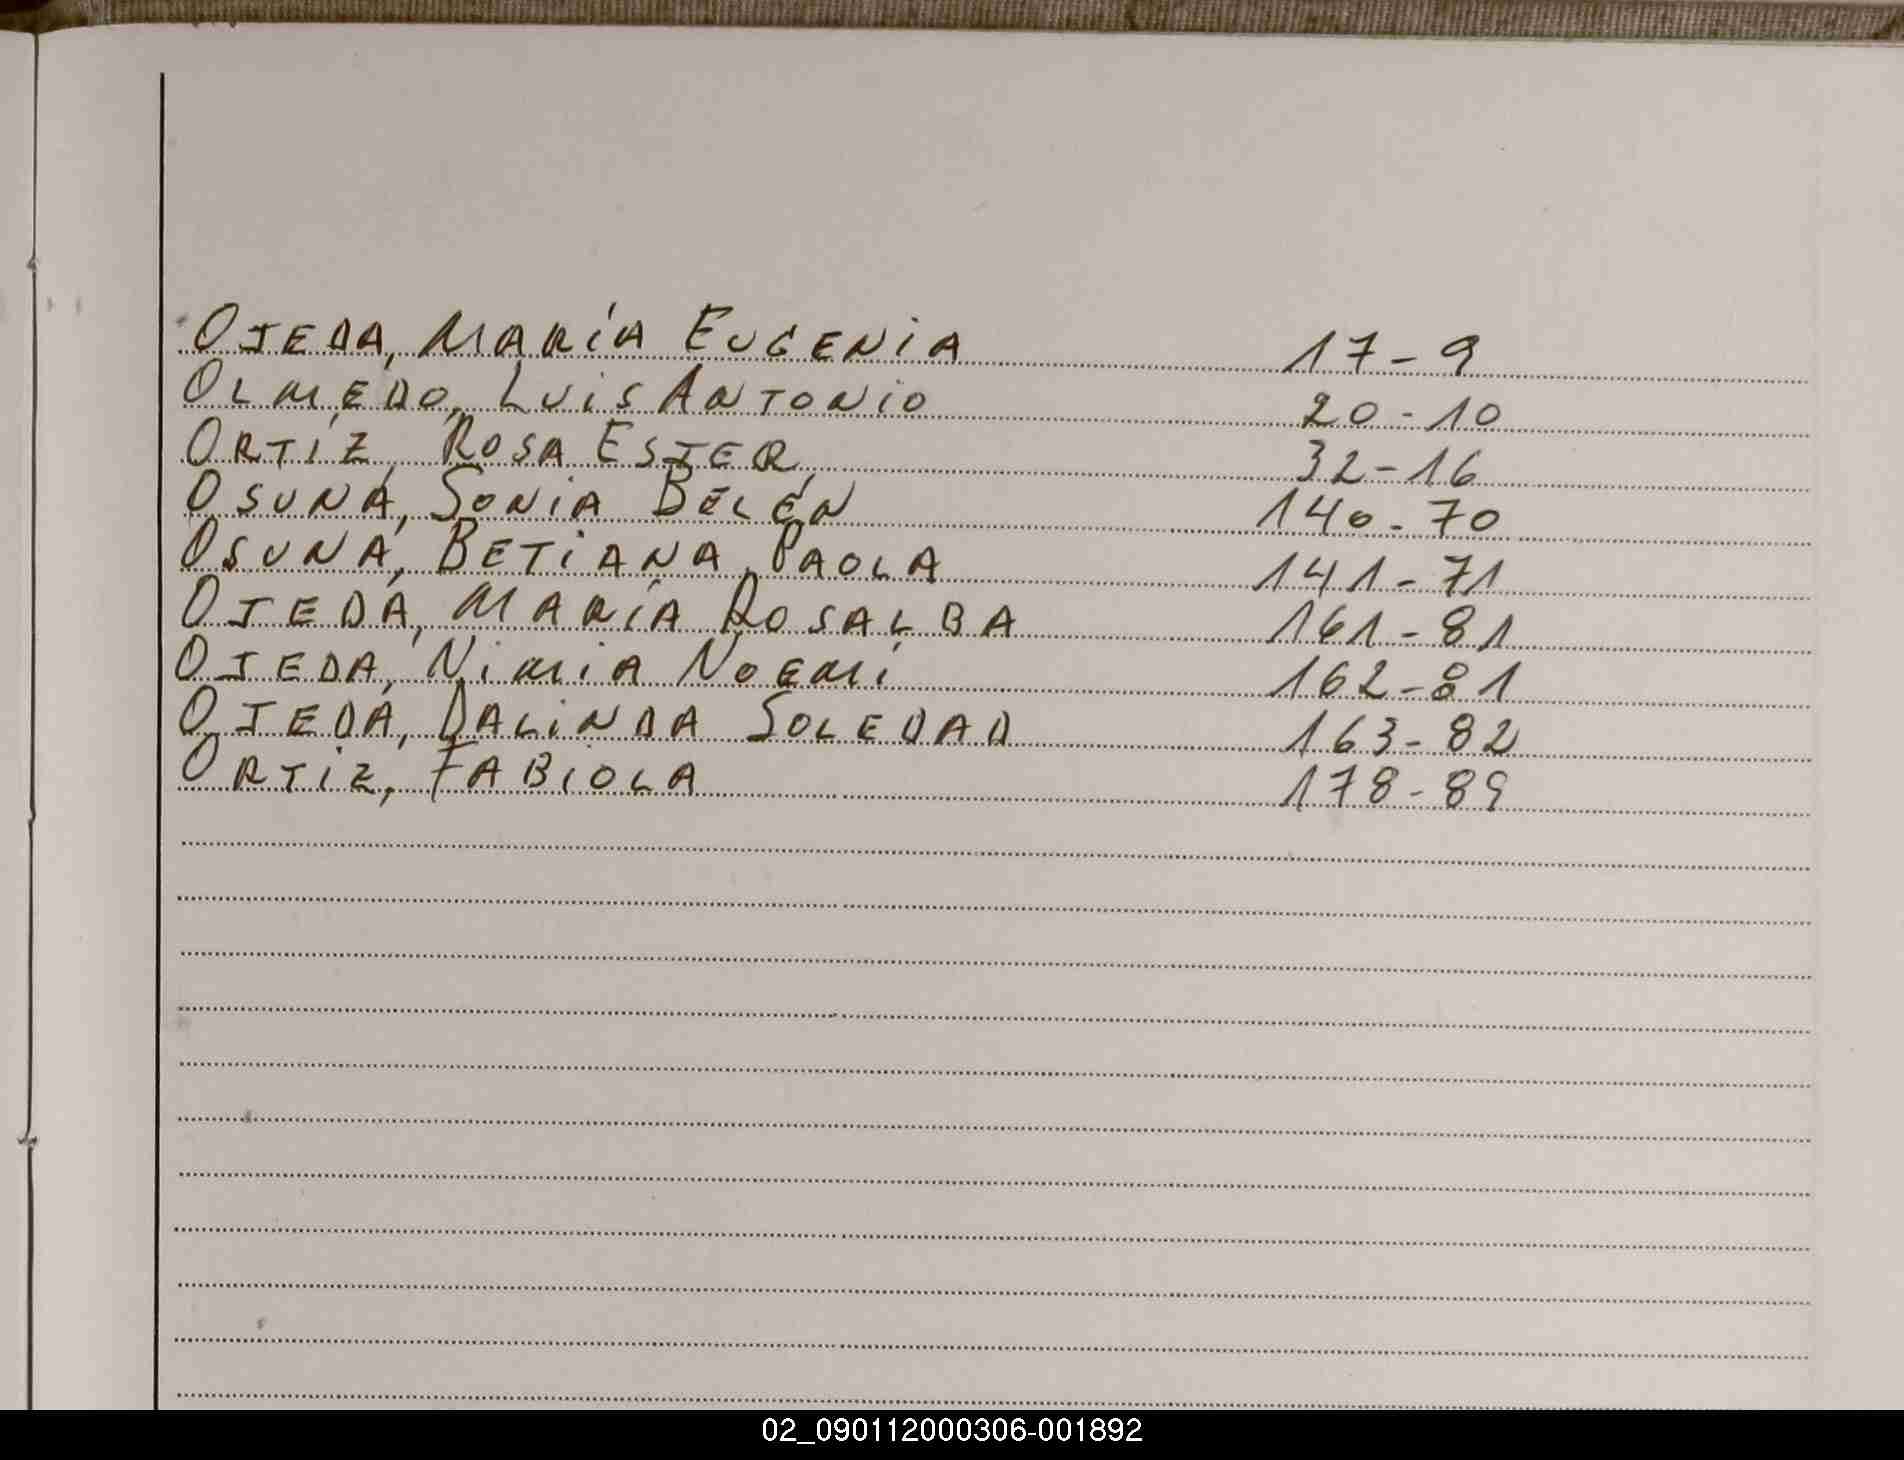 OJEDA, MARÍA EUGENIA 17-9
OLMEDO, LUIS ANTONIO 20-10
ORTÍZ, ROSA ESTER 32-16
OSUNA, SONIA BELÉN 140-70
OSUNA, BETIANA PAOLA 141-71
OJEDA, MARÍA ROSALBA 161-81
OJEDA, NIMIA NOEMÍ 162-81
OJEDA, DALINDA SOLEDAD 163-82
ORTIZ, FABIOLA 178-89
02_090112000306-001892